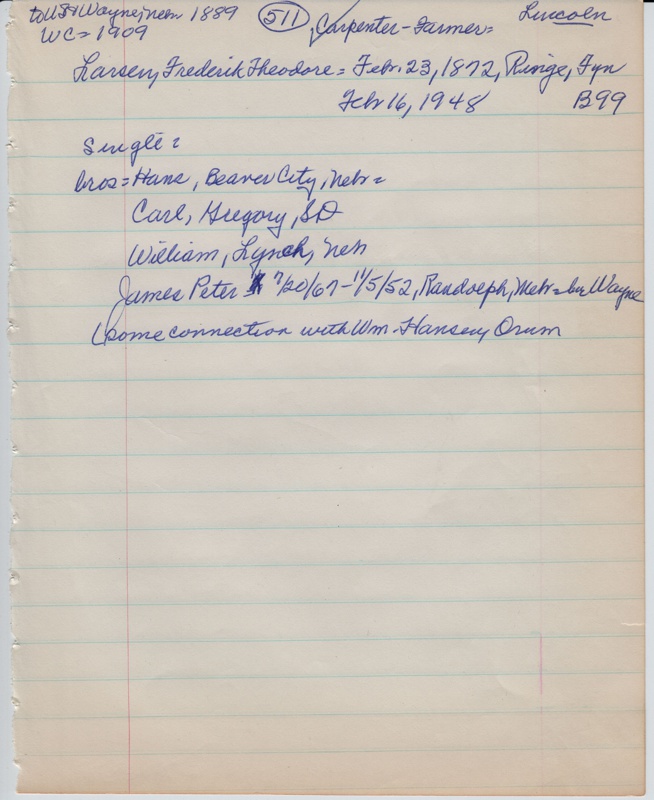 to US & Wayne, Nebr 1889 (511) Carpenter - Farmer = Lincoln
WC = 1909
Larsen, Frederik Theodore = Febr. 23, 1872, Ringe, Fyn
Febr 16, 1948 B99
Single =
bros = Hans, Beaver City, Nebr =
Carl, Gregory, SD
William, Lynch, Neb
James Peter 7/20/67 - 11/5/52, Randolph, Nebr = bu Wayne
(some connection with Wm. Hansen, Orum